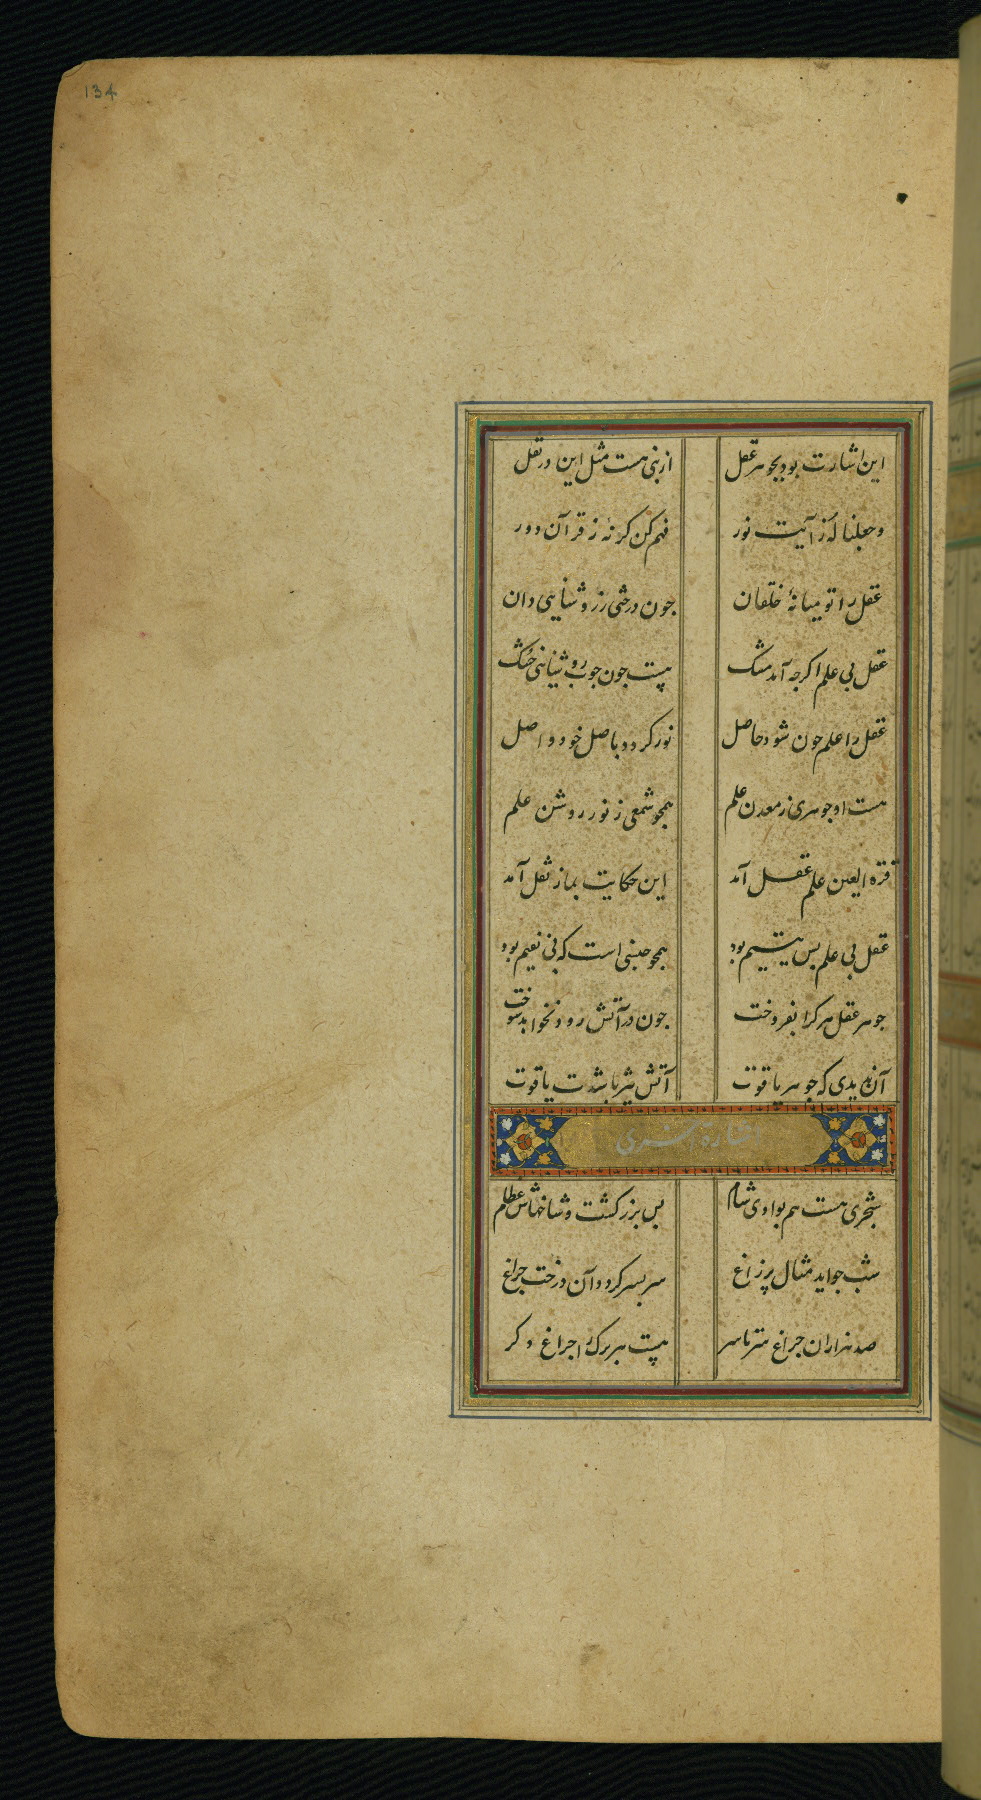 134
این اشارت بود بجوهر عقل از نبی هست مثل این در نقل
وجعلنا له ز آیت نور فهم کن کر نه ز قرآن دور
عقل را تو میانهٔ خلقان جون درختی ز روشنایی دان
عقل بی علم اکرجه آمد مشک هست جون جوب روشنایی خشک
عقل را علم جون شود حاصل نور کردد باصل خود واصل
هست او جوهری ز معدن علم همجو شمعی ز نور روشن علم
قرة العین علم عقل آمد این حکایت بما ز نقل آمد
عقل بی علم بس یتیم بود همجو جنبی است که بی نعیم بود
جوهر عقل هر کرا بفروخت جون در آتش رود نخواهد سوخت
آن ندیدی که جوهر یاقوت آتش تیز باشدت یاقوت
اشارة اخری
شجری هست هم بوادی شام بس بزرکست و شاخهاش عظام
شب جو اید مثال پر زاغ سر بسر کردد آن درخت جراغ
صد هزاران جراغ سر تا سر هست هر برک را جراغ دکر